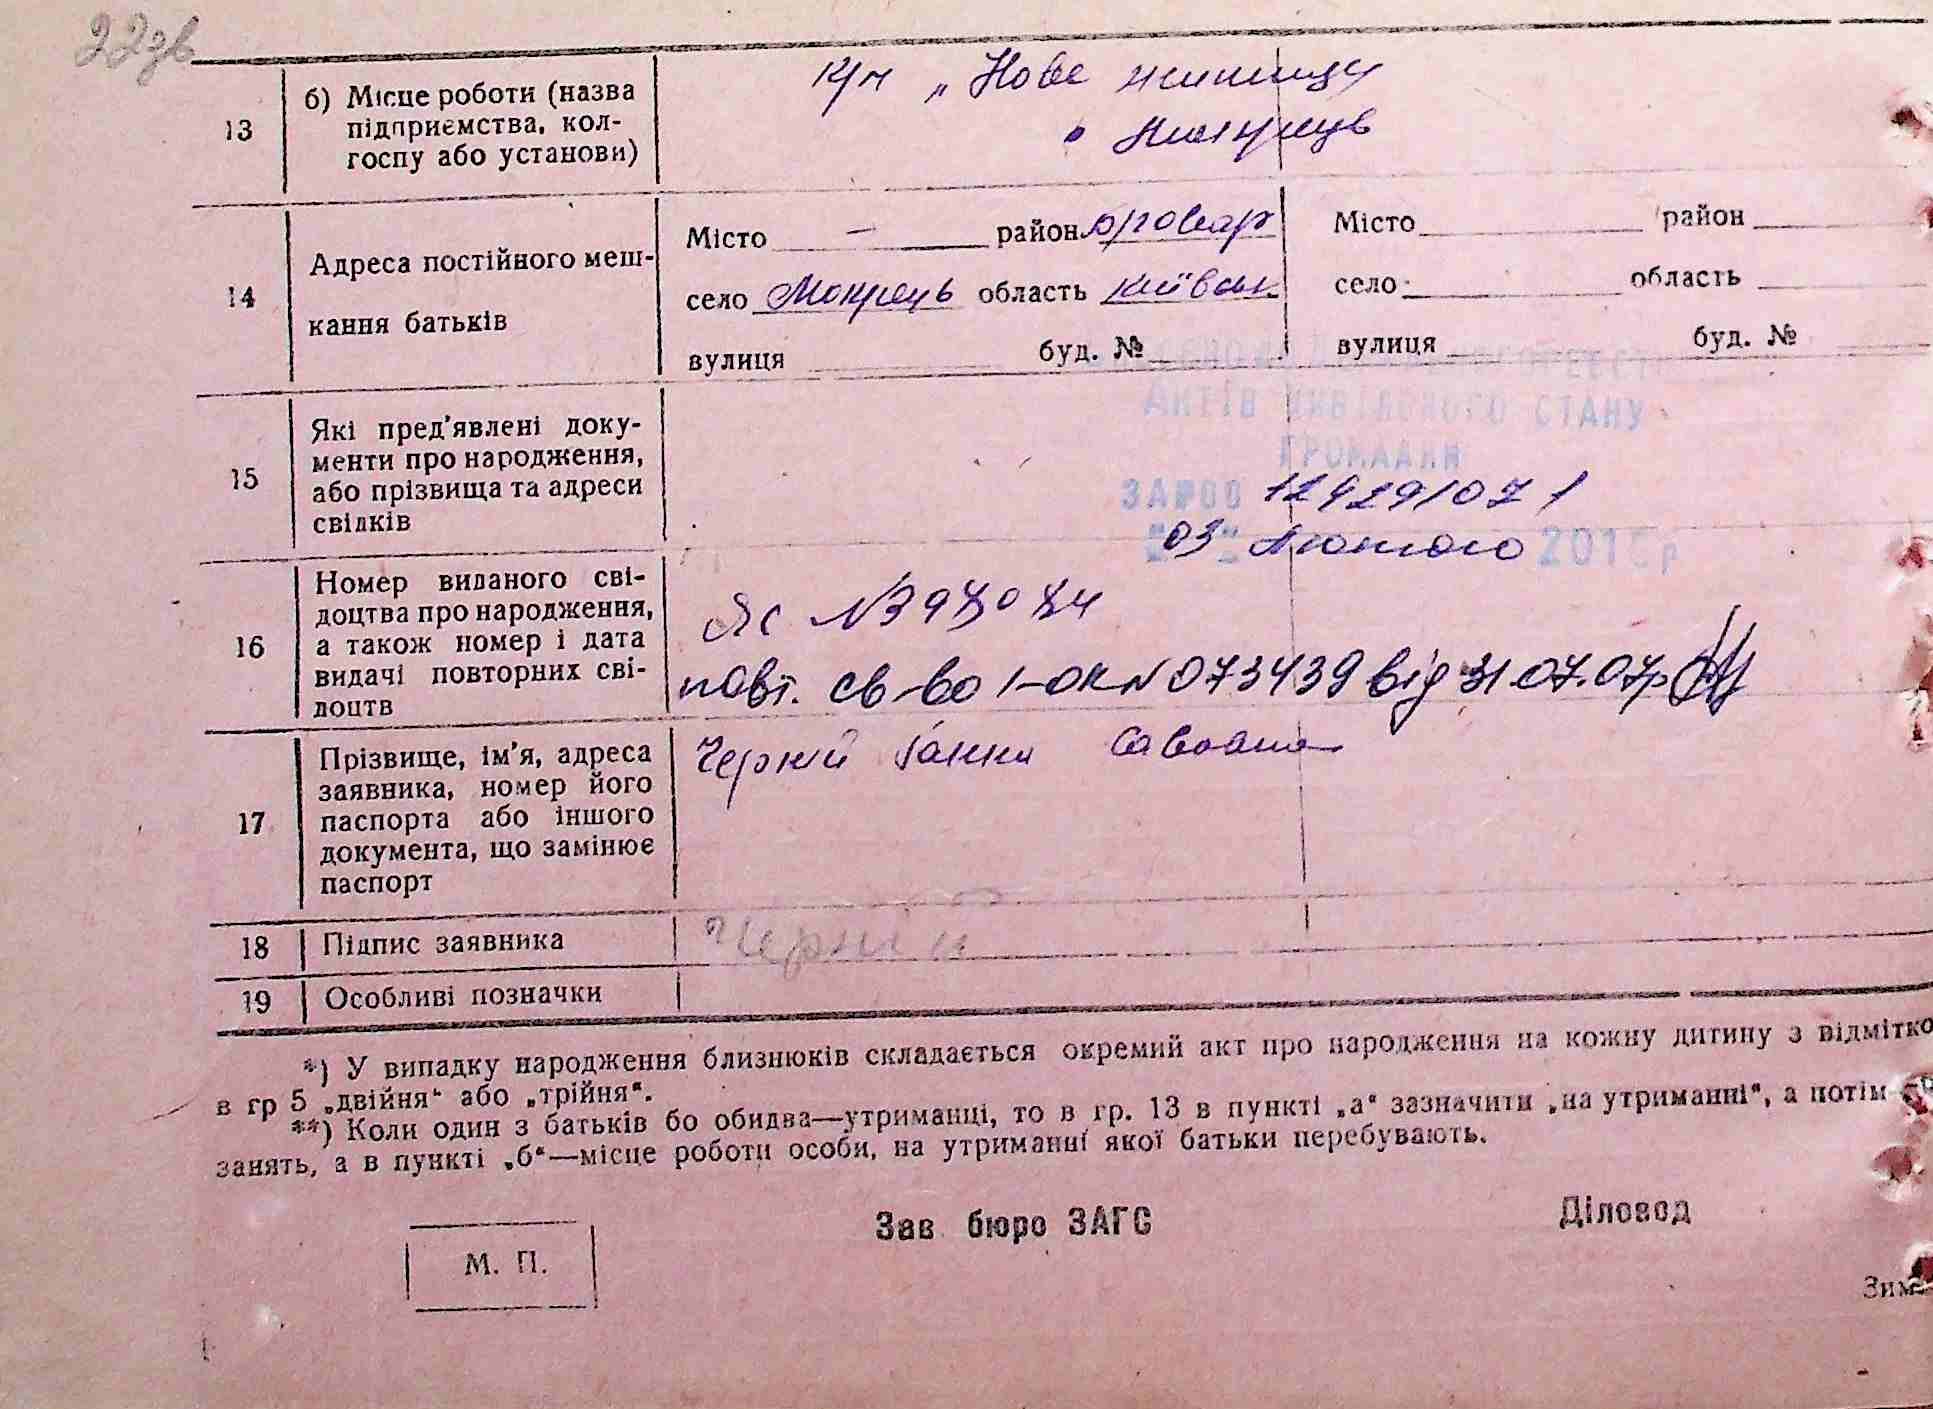 22зв
13
б) Місце роботи (назва
підприємства, кол-
госпу або установи)
к/г „Нове життя"
14
Адреса постійного меш-
кання батьків
Місто — район Бровар
село Мокрець область Київськ
вулиця буд. №
Місто район
село область
вулиця буд. №
15
Які пред'явлені доку-
менти про народження,
або прізвища та адреси
свідків
АКТІВ ЦИВІЛЬНОГО СТАНУ
ГРОМАДЯН
03 лютого 201
16
Номер виданого сві-
доцтва про народження,
а також номер і дата
видачі повторних сві-
доцтв
повт. св-во 1-ОК № 073439 від 31.07.07р
17
Прізвище, ім'я, адреса
заявника, номер його
паспорта або іншого
документа, що замінює
паспорт
Черній Ганна
18
Підпис заявника
Черній
19
Особливі позначки
*) У випадку народження близнюків складається окремий акт про народження на кожну дитину з відмітко
в гр 5 „двійня" або „трійня".
**) Коли один з батьків бо обидва—утриманці, то в гр. 13 в пункті „а" зазначити „на утриманні", а потім
занять, а в пункті „б"—місце роботи особи, на утриманні якої батьки перебувають.
М. П.
Зав бюро ЗАГС
Діловод
Зим